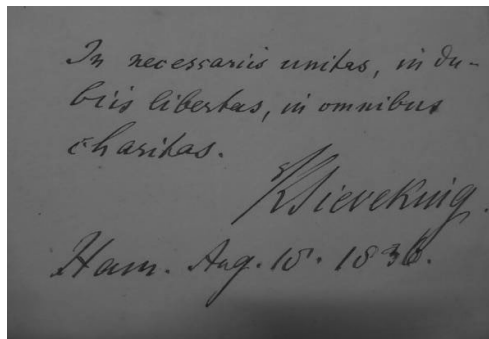 In necessariis unitas, in du-
biis libertas, in omnibus
charitas.
K Sieveking.
Ham. Aug. 18. 1836.